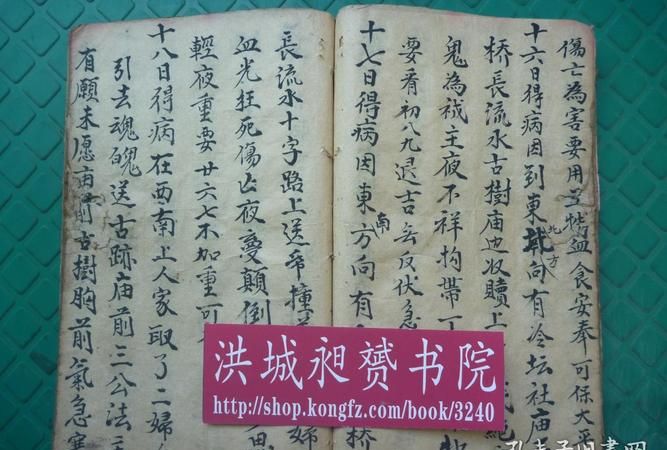 傷亡為害要用三牲血食安奉可保大平
十六日得病因到東北方向有冷坛社庙
桥長流水古樹庙边收贖上
鬼為祸主夜不祥拘帶丁
要看初八九退吉无反伏急
十七日得病因東南方向有
桥
長流水十字路上送帋撞
婦
血光狂死傷亡夜夢顛倒
輕夜重要廿六七不加重可
十八日得病在西南上人家取了二婦
引去魂魄送古跡庙前三公法
有願未愿庙前古樹胸前氣急寒
洪城昶赟书院
http://shop.kongfz.com/book/3240
孔夫子旧书网